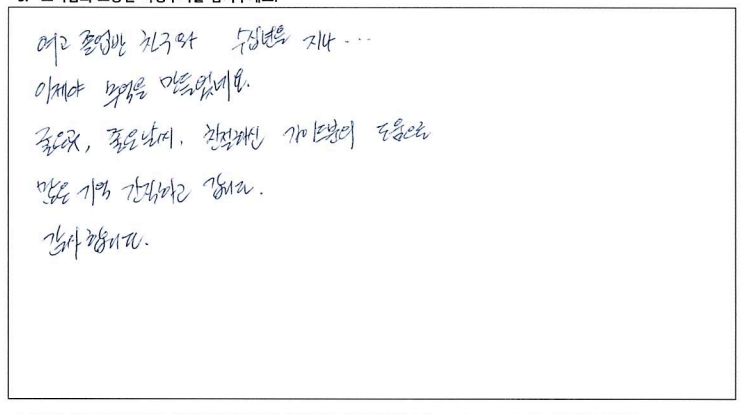 여고 졸업반 친구와 수십년을 지나...
이제야 추억을 만들었네요.
좋은곳, 좋은날씨, 친절하신 가이드분의 도움으로
많은 기억 간직하고 갑니다.
감사합니다.